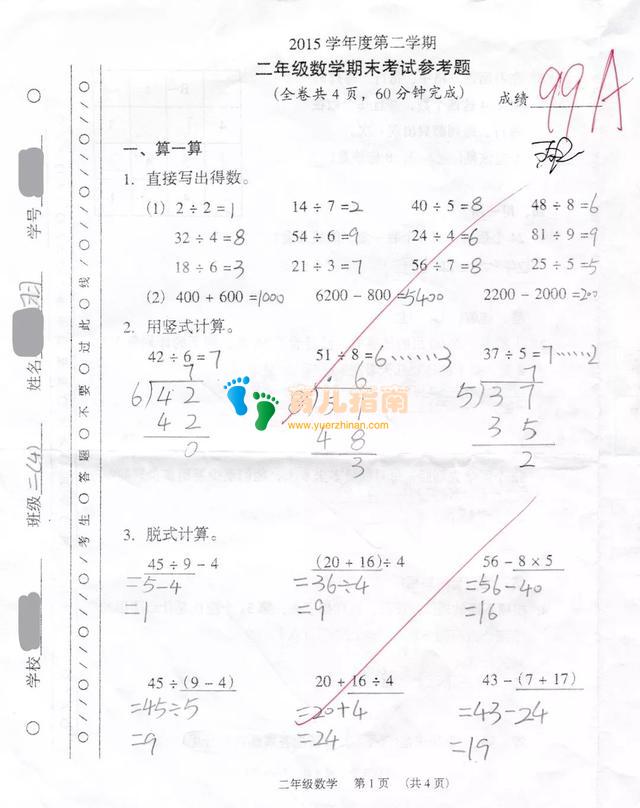 2015 学年度第二学期
二年级数学期末考试参考题
(全卷共 4 页，60 分钟完成)
成绩 99A
一、算一算
1. 直接写出得数。
(1) 2 ÷ 2 = 1 14 ÷ 7 = 2 40 ÷ 5 = 8 48 ÷ 8 = 6
32 ÷ 4 = 8 54 ÷ 6 = 9 24 ÷ 4 = 6 81 ÷ 9 = 9
18 ÷ 6 = 3 21 ÷ 3 = 7 56 ÷ 7 = 8 25 ÷ 5 = 5
(2) 400 + 600 = 1000 6200 - 800 = 5400 2200 - 2000 = 200
2. 用竖式计算。
42 ÷ 6 = 7 51 ÷ 8 = 6……3 37 ÷ 5 = 7……2
7 6 7
6 42 51 5 37
42 48 35
0 3 2
育儿指南
www.yuerzhinan.com
3. 脱式计算。
45 ÷ 9 - 4 (20 + 16) ÷ 4 56 - 8 × 5
= 5 - 4 = 36 ÷ 4 = 56 - 40
= 1 = 9 = 16
45 ÷ (9 - 4) 20 + 16 ÷ 4 43 - (7 + 17)
= 45 ÷ 5 = 20 + 4 = 43 - 24
= 9 = 24 = 19
二年级数学 第 1 页 (共 4 页)
学校 班级 二(4) 姓名 学号
○//○//○/考生○答题○不要○过此○线/○//○//○